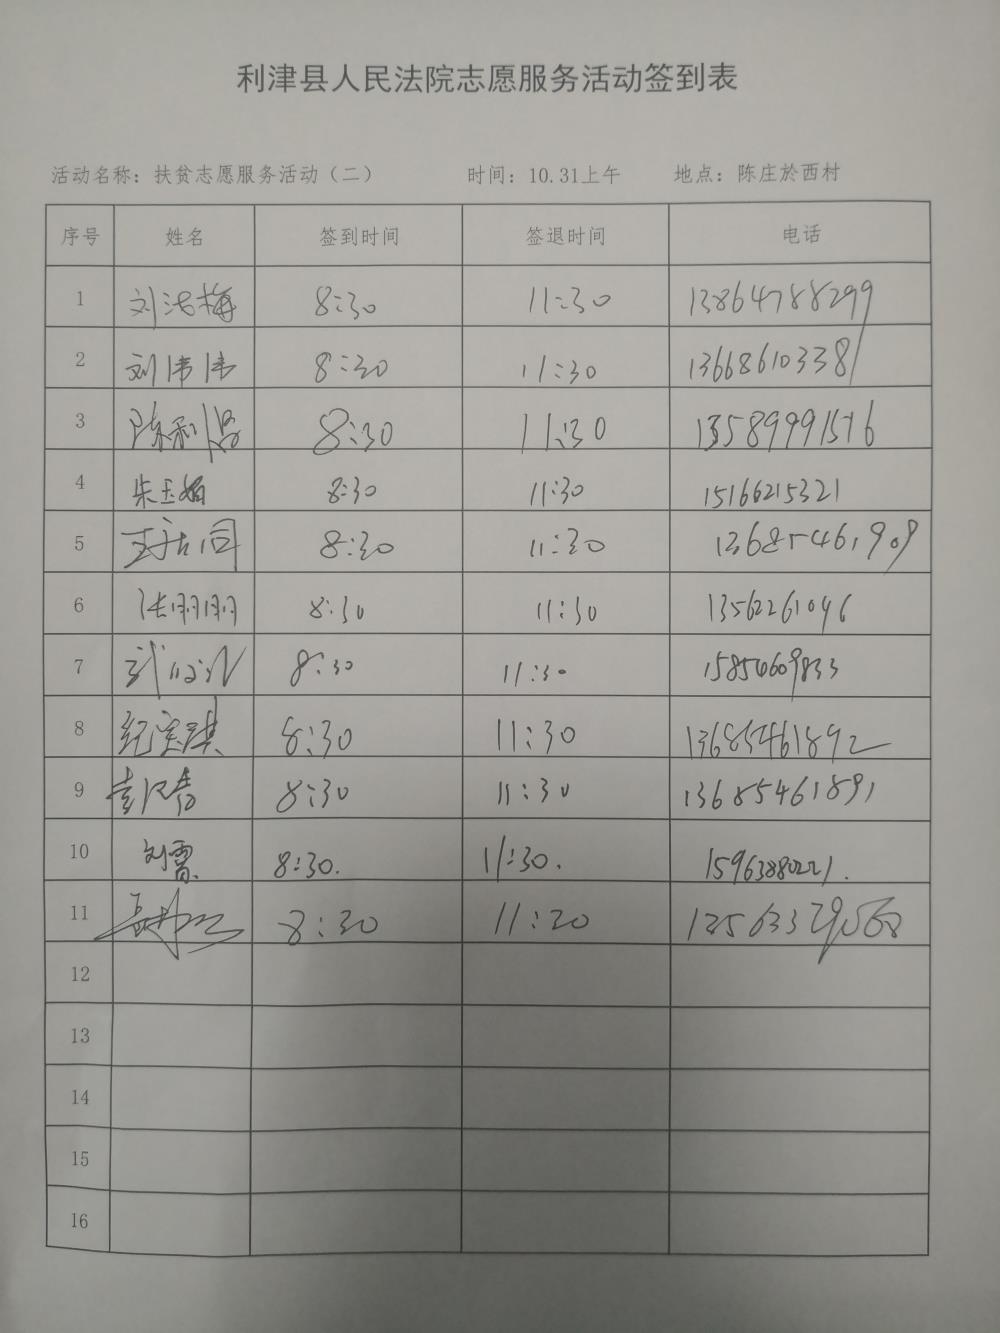 利津县人民法院志愿服务活动签到表
活动名称：扶贫志愿服务活动（二） 时间：10.31上午 地点：陈庄於西村
序号 姓名 签到时间 签退时间 电话
1 刘洁梅 8:30 11:30 13864788299
2 刘伟伟 8:30 11:30 13668610338
3 8:30 11:30 13589991576
4 朱玉娟 8:30 11:30 15166215321
5 8:30 11:30 13685461909
6 张朋朋 8:30 11:30 13562261046
7 8:30 11:30 15854609833
8 纪宝琪 8:30 11:30 13685461892
9 8:30 11:30 13685461891
10 刘雷 8:30. 11:30. 15963880221.
11 8:30 11:30
12
13
14
15
16